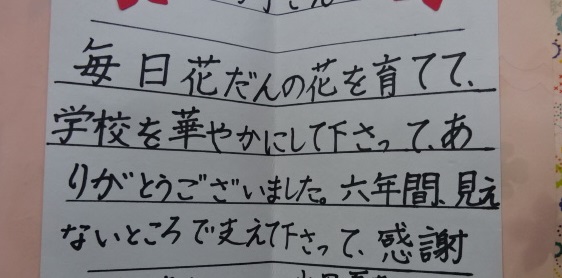 毎日花だんの花を育てて、
学校を華やかにして下さって、あ
りがとうございました。六年間、見え
ないところで支えて下さって、感謝